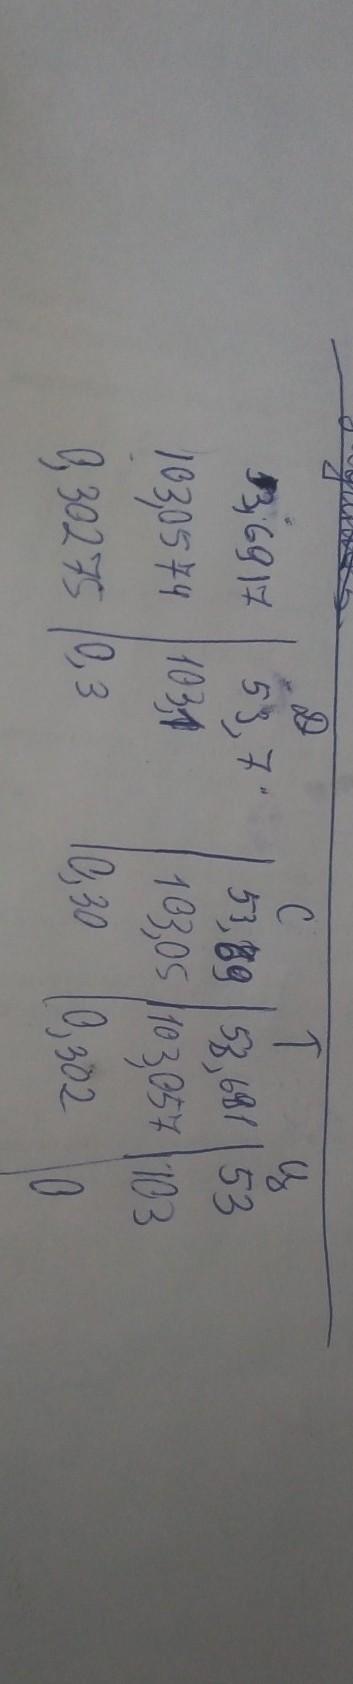 Д С Т Ц
53,6917 53,7 53,69 53,691 53
103,0574 103,1 103,05 103,057 103
0,30275 0,3 0,30 0,302 0